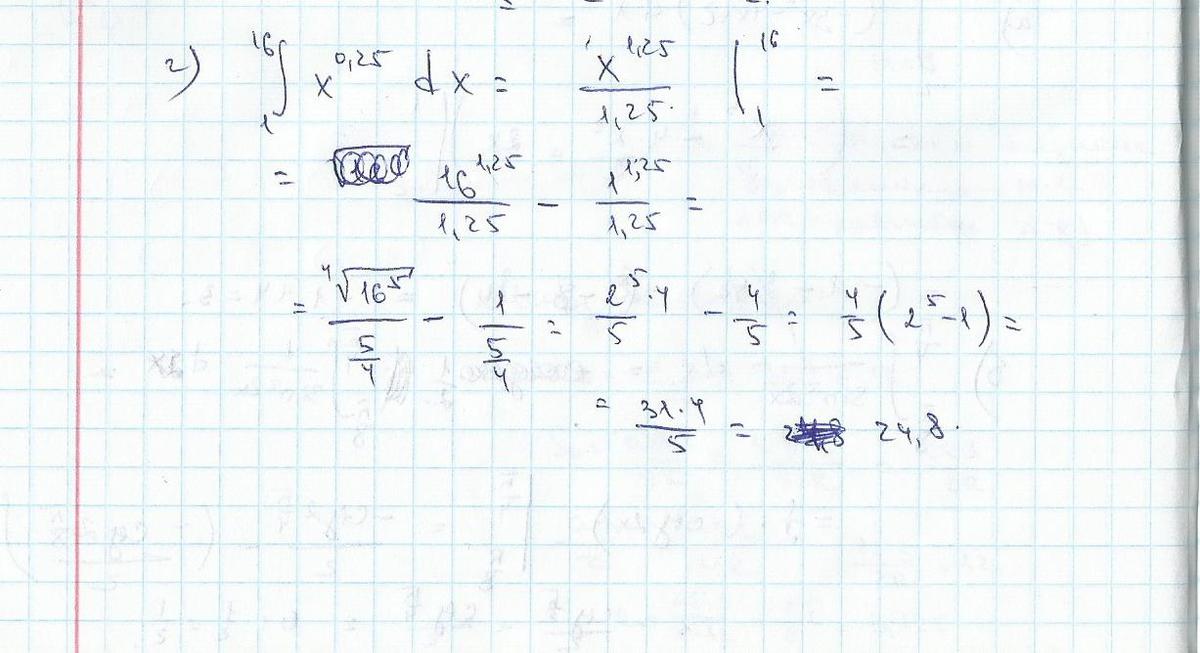 г) ∫₁¹⁶ x^0,25 dx = x^1,25 / 1,25 |₁¹⁶ =
= 16^1,25 / 1,25 − 1^1,25 / 1,25 =
= ⁴√(16^5) / (5/4) − 1 / (5/4) = 2^5·4 / 5 − 4/5 = 4/5 (2^5 − 1) =
= 31·4 / 5 = 24,8.